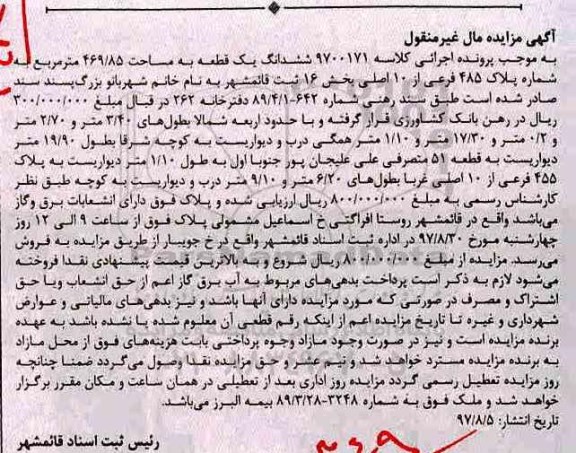 آگهی مزایده مال غیرمنقول
به موجب پرونده اجرائی کلاسه ۹۷۰۰۱۷۱ ششدانگ یک قطعه به مساحت ۴۶۹/۸۵ مترمربع به
شماره پلاک ۴۸۵ فرعی از ۱۰ اصلی بخش ۱۶ ثبت قائمشهر به نام خانم شهربانو بزرگ‌پسند سند
صادر شده است طبق سند رهنی شماره ۶۴۲-۸۹/۴/۱ دفترخانه ۲۶۲ در قبال مبلغ ۳۰۰/۰۰۰/۰۰۰
ریال در رهن بانک کشاورزی قرار گرفته و با حدود اربعه شمالا بطول‌های ۳/۴۰ متر و ۲/۷۰ متر
و ۰/۲ متر و ۱۷/۳۰ متر و ۱/۱۰ متر همگی درب و دیواریست به کوچه شرقا بطول ۱۹/۹۰ متر
دیواریست به قطعه ۵۱ متصرفی علی علیجان پور جنوبا اول به طول ۱/۱۰ متر دیواریست به پلاک
۴۵۵ فرعی از ۱۰ اصلی غربا بطول‌های ۶/۲۰ متر و ۹/۱۰ متر درب و دیواریست به کوچه طبق نظر
کارشناس رسمی به مبلغ ۸۰۰/۰۰۰/۰۰۰ ریال ارزیابی شده و پلاک فوق دارای انشعابات برق وگاز
می‌باشد واقع در قائمشهر روستا افراگتی خ اسماعیل مشمولی پلاک فوق از ساعت ۹ الی ۱۲ روز
چهارشنبه مورخ ۹۷/۸/۳۰ در اداره ثبت اسناد قائمشهر واقع در خ جویبار از طریق مزایده به فروش
می‌رسد. مزایده از مبلغ ۸۰۰/۰۰۰/۰۰۰ ریال شروع و به بالاترین قیمت پیشنهادی نقدا فروخته
می‌شود لازم به ذکر است پرداخت بدهی‌های مربوط به آب برق گاز اعم از حق انشعاب ویا حق
اشتراک و مصرف در صورتی که مورد مزایده دارای آنها باشد و نیز بدهی‌های مالیاتی و عوارض
شهرداری و غیره تا تاریخ مزایده اعم از اینکه رقم قطعی آن معلوم شده یا نشده باشد به عهده
برنده مزایده است و نیز در صورت وجود مازاد وجوه پرداختی بابت هزینه‌های فوق از محل مازاد
به برنده مزایده مسترد خواهد شد و نیم عشر و حق مزایده نقدا وصول می‌گردد ضمنا چنانچه
روز مزایده تعطیل رسمی گردد مزایده روز اداری بعد از تعطیلی در همان ساعت و مکان مقرر برگزار
خواهد شد و ملک فوق به شماره ۳۲۴۸-۸۹/۳/۲۸ بیمه البرز می‌باشد.
تاریخ انتشار: ۹۷/۸/۵
رئیس ثبت اسناد قائمشهر